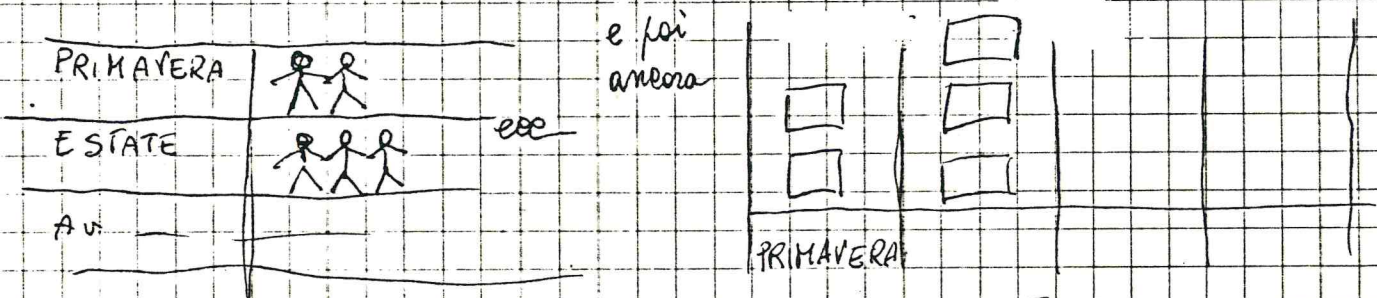 PRIMAVERA
ESTATE
ecc
Au
e poi
ancora
PRIMAVERA